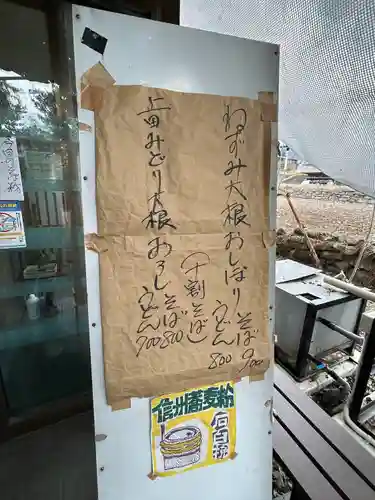 ねずみ大根おしぼり
そば 900
うどん 800
(十割そば)
上田みどり大根おろし
そば 800
うどん 900
信州蕎麦粉
石臼挽